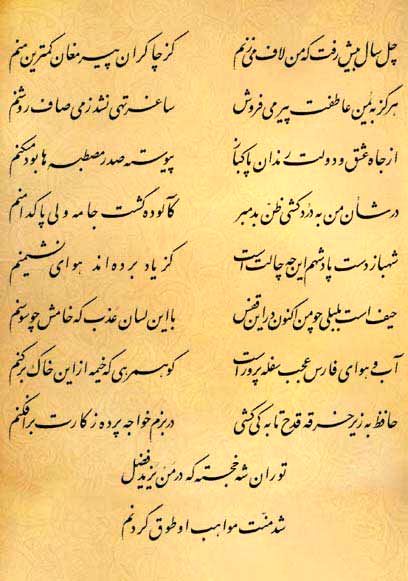 چل سال بیش رفت که من لاف می زنم کز چاکران پیر مغان کمترین منم
هرگز به یمن عاطفت پیر می فروش ساغر تهی نشد ز می صاف روشنم
از جاه عشق و دولت رندان پاکباز پیوسته صدر مصطبه ها بود مسکنم
در شان من به دردکشی ظن بد مبر کآلوده گشت جامه ولی پاکدامنم
شهباز دست پادشهم این چه حالت است کز یاد برده اند هوای نشیمنم
حیف است بلبلی چو من اکنون در این قفس با این لسان عذب که خامش چو سوسنم
آب و هوای فارس عجب سفله پرور است کو همرهی که خیمه از این خاک برکنم
حافظ به زیر خرقه قدح تا به کی کشی در بزم خواجه پرده ز کارت برافکنم
توران شه خجسته که در من یزید فضل
شد منت مواهب او طوق گردنم